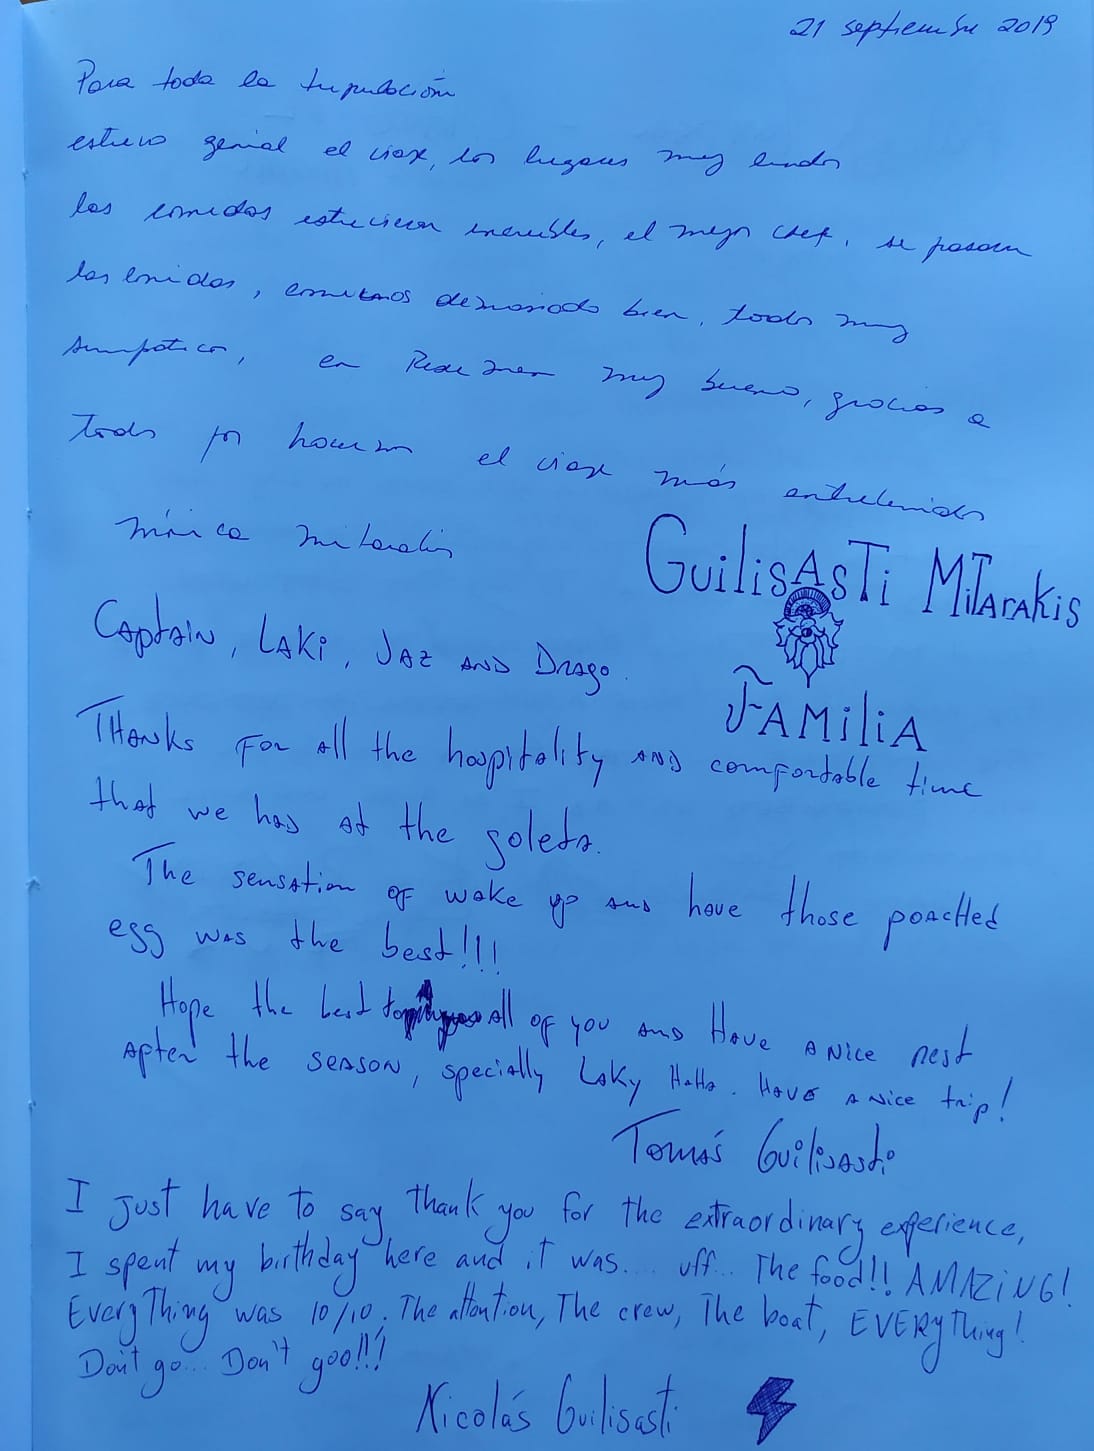 21 septiembre 2019
Para toda la tripulación
estuvo genial el viaje, los lugares muy lindos
las comidas estuvieron increíbles, el mejor chef, se pasaron
las comidas, comimos demasiado bien, todos muy
simpáticos, en muy bueno, gracias a
todos por hacernos el viaje más entretenido
Mónica Mitarakis
GuilisAsTi MiTArakis
FAMiliA
Captain, Laki, Jaz and Drago.
Thanks for all the hospitality and comfortable time
that we has at the goleta.
The sensation of wake up and have those poached
egg was the best!!!
Hope the best to all of you and Have a nice rest
after the season, specially Laky HaHa. Have a nice trip!
Tomás Guilisasti
I just have to say thank you for the extraordinary experience,
I spent my birthday here and it was.... uff... The food!!! AMAZiNG!
EveryThing was 10/10. The attention, The crew, The boat, EVERyThing!
Don't go... Don't goo!!!
Nicolás Guilisasti